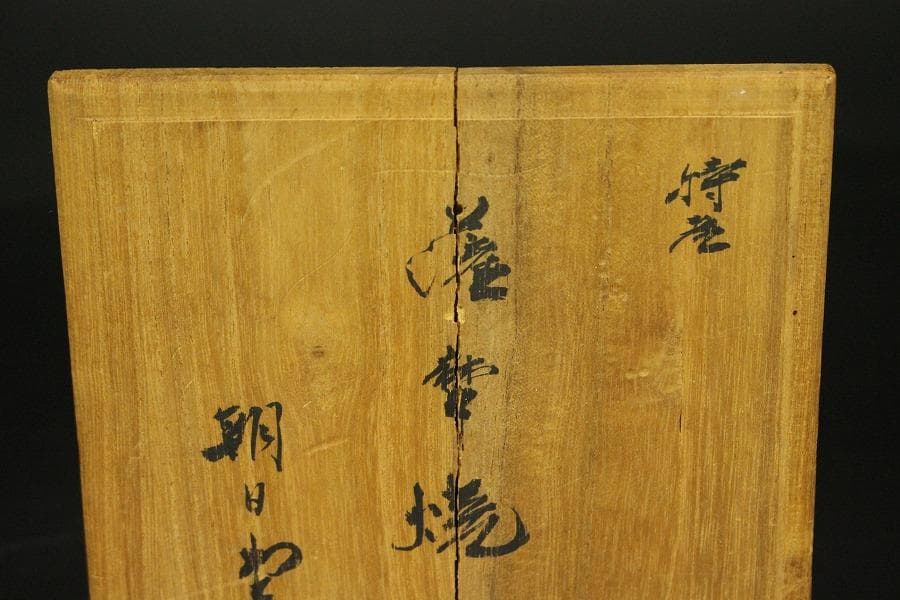 特産
薩摩焼
朝日